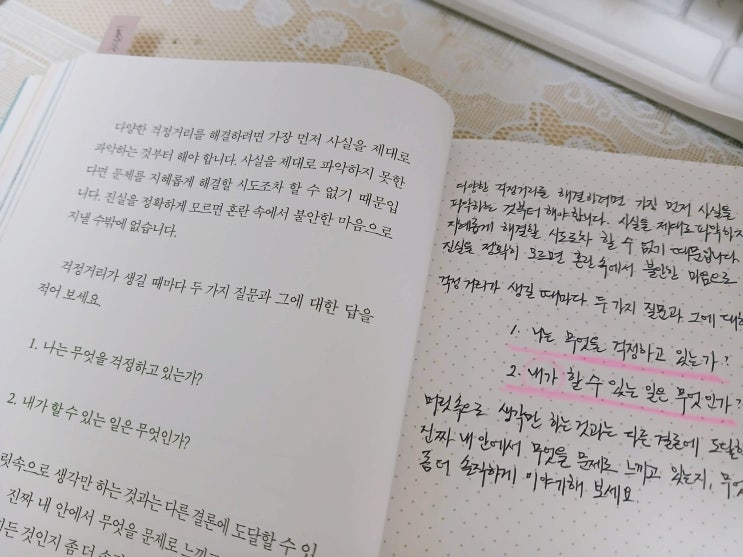 다양한 걱정거리를 해결하려면 가장 먼저 사실을 제대로
파악하는 것부터 해야 합니다. 사실을 제대로 파악하지 못한
다면 문제를 지혜롭게 해결할 시도조차 할 수 없기 때문입
니다. 진실을 정확하게 모르면 혼란 속에서 불안한 마음으로
지낼 수밖에 없습니다.
걱정거리가 생길 때마다 두 가지 질문과 그에 대한 답을
적어 보세요.
1. 나는 무엇을 걱정하고 있는가?
2. 내가 할 수 있는 일은 무엇인가?
릿속으로 생각만 하는 것과는 다른 결론에 도달할 수 있
진짜 내 안에서 무엇을 문제로 느끼고
든 것인지 좀 더
다양한 걱정거리를 해결하려면 가장 먼저 사실을
파악하는 것부터 해야 합니다. 사실을 제대로 파악하지
지혜롭게 해결할 시도조차 할 수 없기 때문입니다.
진실을 정확히 모르면 혼란 속에서 불안한 마음으로
걱정거리가 생길 때마다 두 가지 질문과 그에 대한
1. 나는 무엇을 걱정하고 있는가?
2. 내가 할 수 있는 일은 무엇인가?
머릿속으로 생각만 하는 것과는 다른 결론에 도달할
진짜 내 안에서 무엇을 문제로 느끼고 있는지, 무엇
좀 더 솔직하게 이야기해 보세요.